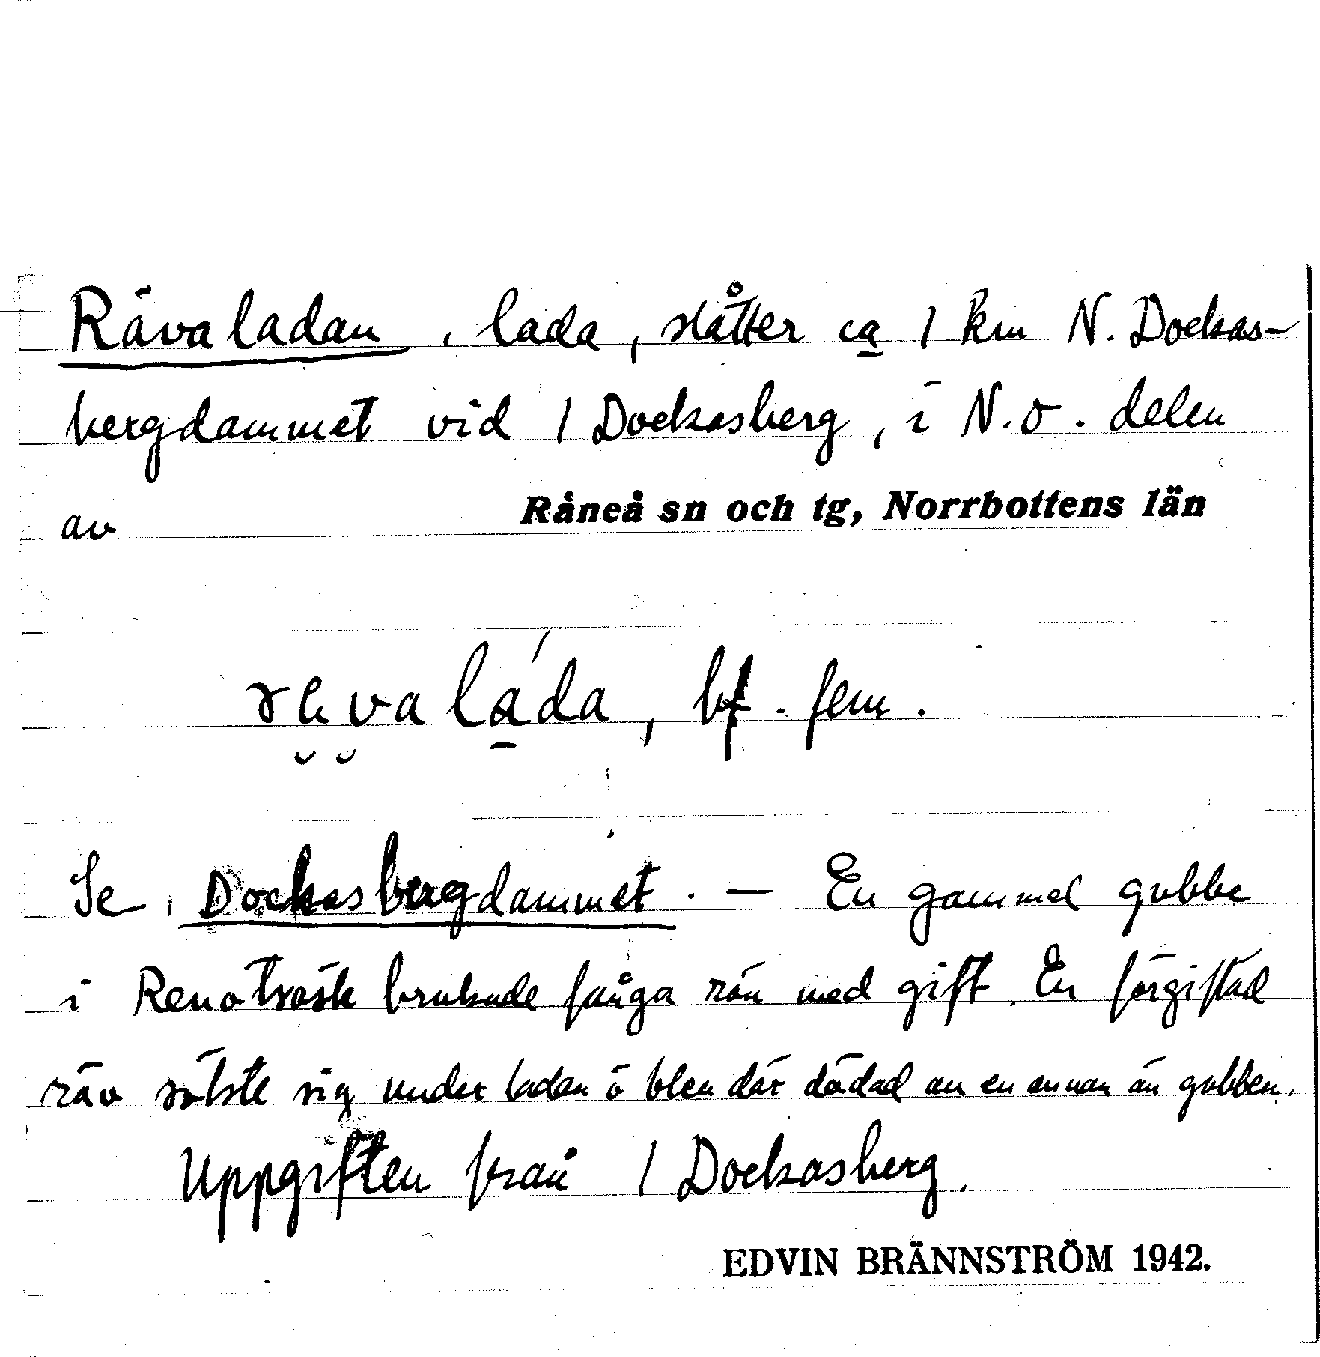 Rävaladan, lada, slåtter ca 1 km N. Dockas-
bergdammet vid 1 Dockasberg, i N.O. delen
av Råneå sn och tg, Norrbottens län
lȧ́da, bf. fem.
Se Dockasbergdammet. — En gammel gubbe
i Renoträsk brukade fånga räv med gift. En förgiftad
räv sökte sig under ladan o blev där dödad av en annan än gubben.
Uppgiften från 1 Dockasberg.
EDVIN BRÄNNSTRÖM 1942.